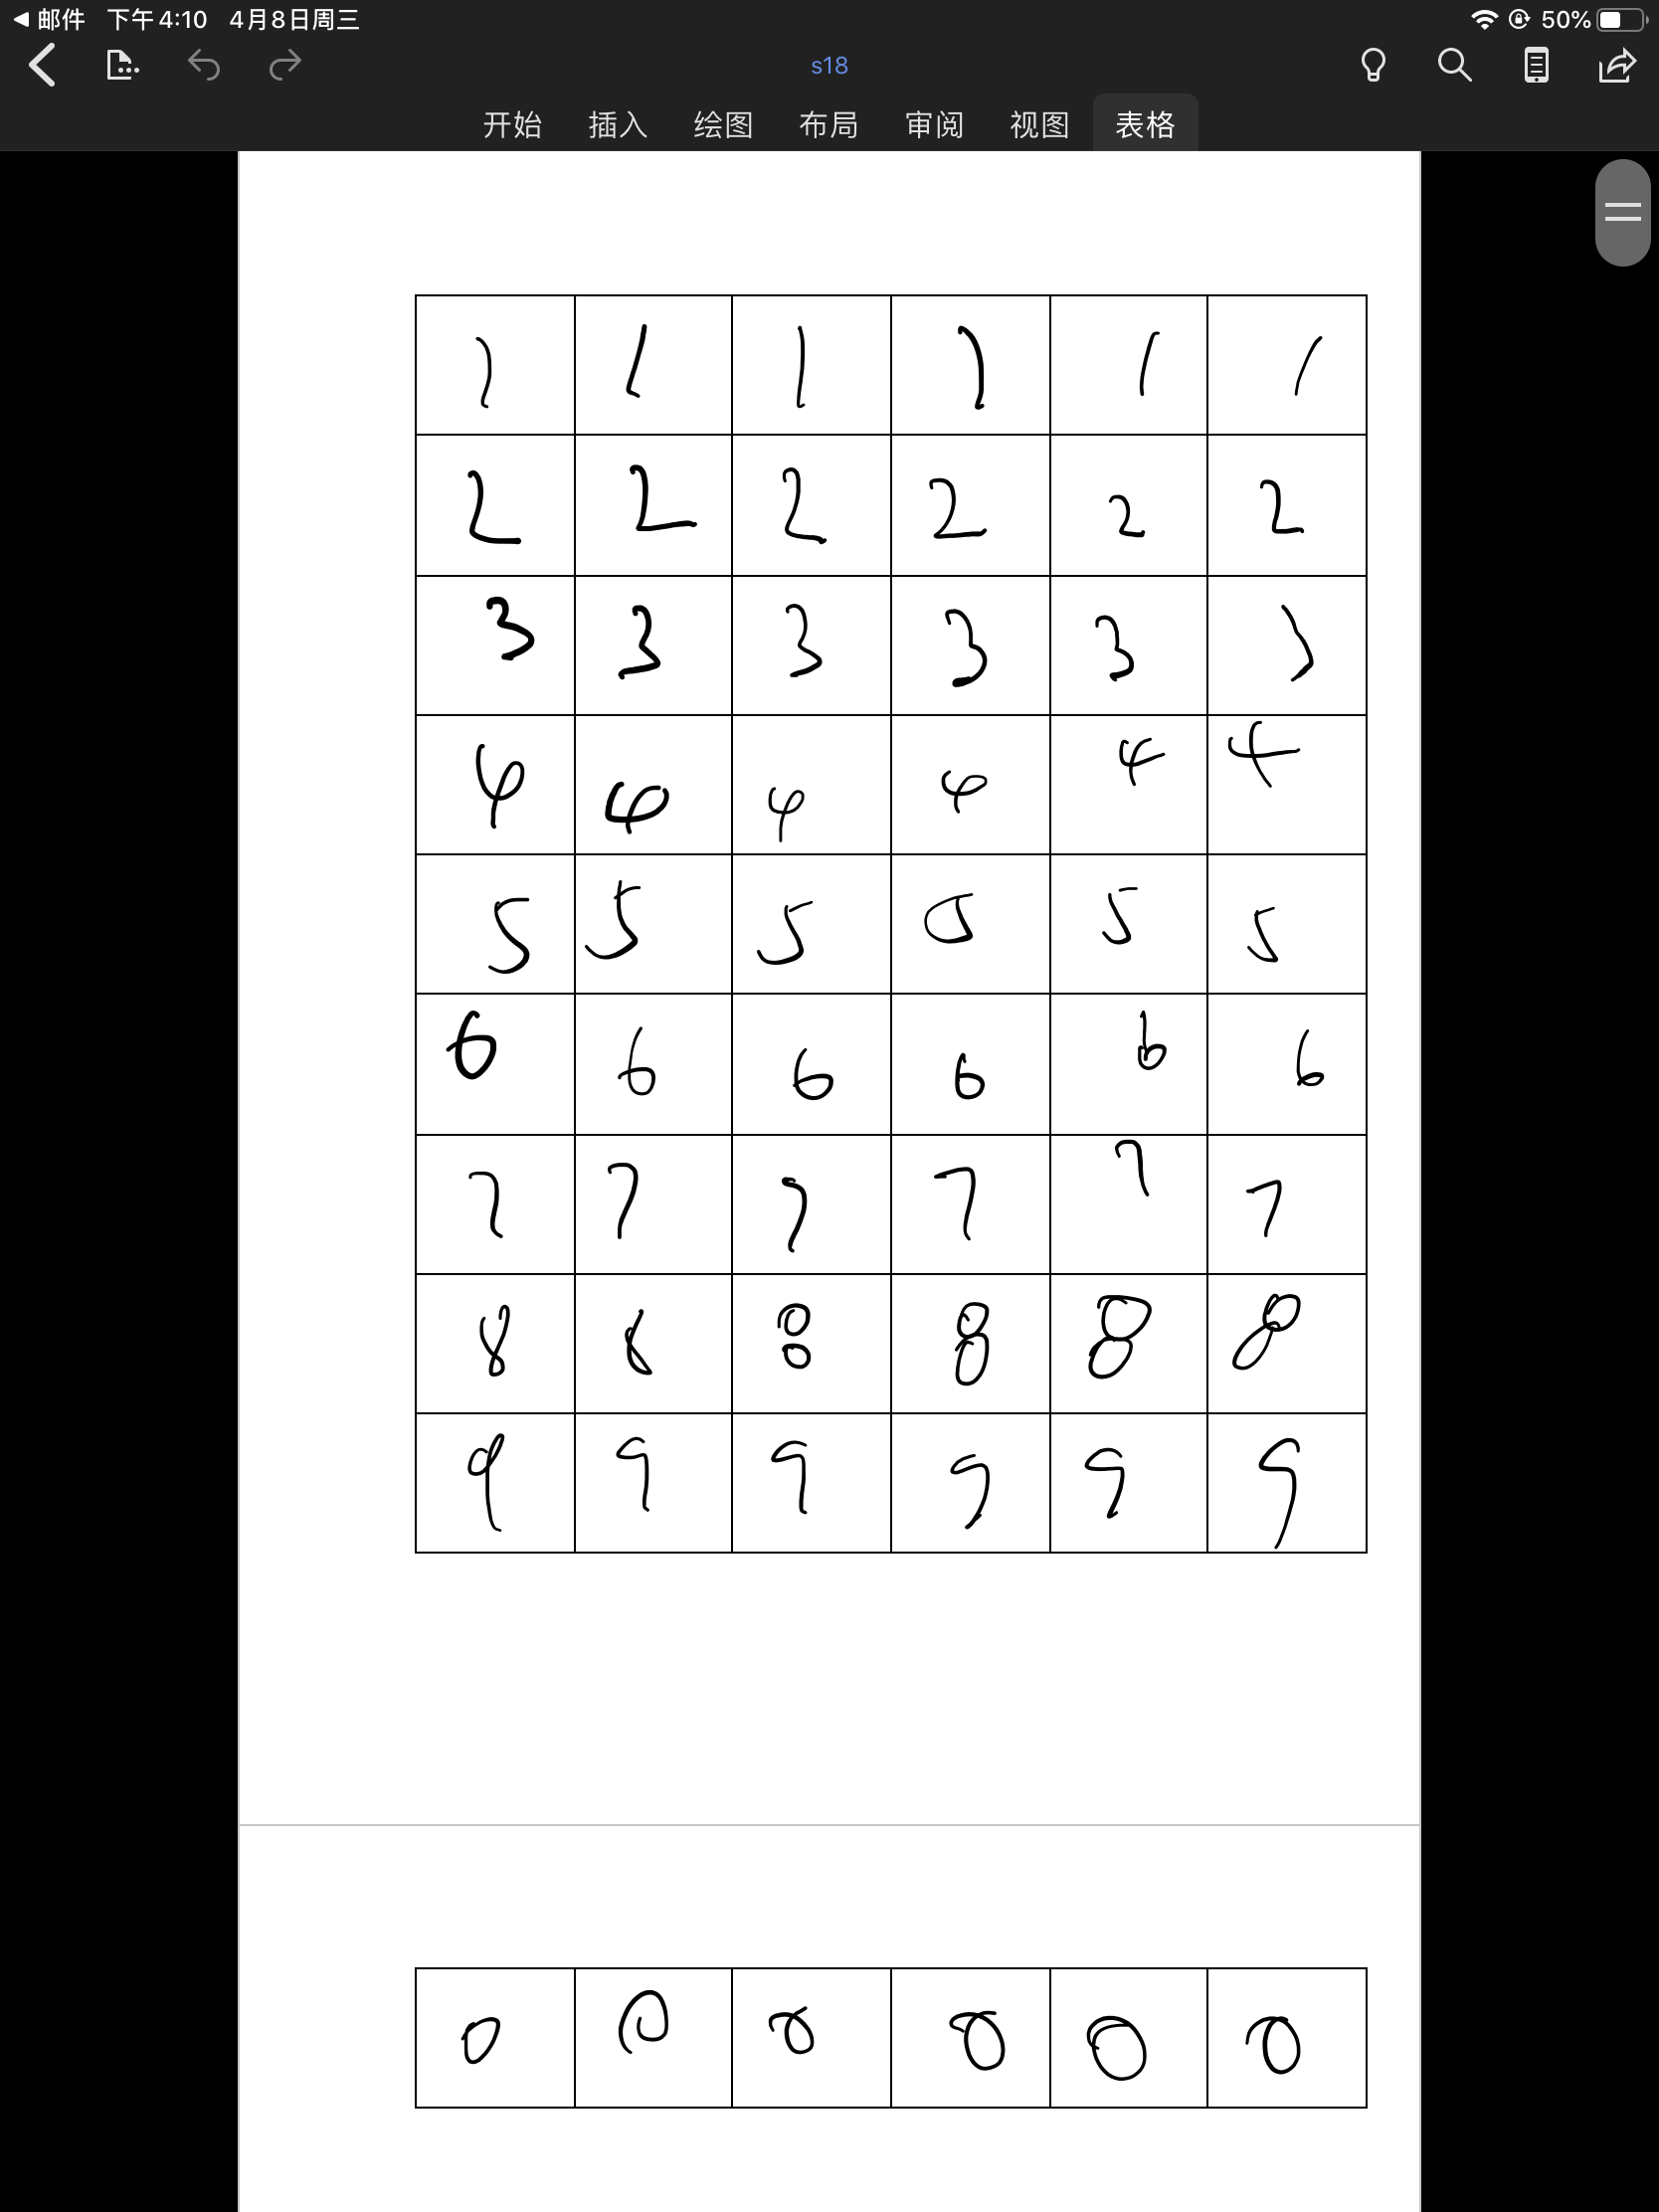 邮件 下午4:10 4月8日周三 50%
s18
开始 插入 绘图 布局 审阅 视图 表格
1 1 1 1 1 1
2 2 2 2 2 2
3 3 3 3 3 3
4 4 4 4 4 4
5 5 5 5 5 5
6 6 6 6 6 6
7 7 7 7 7 7
8 8 8 8 8 8
9 9 9 9 9 9
0 0 0 0 0 0